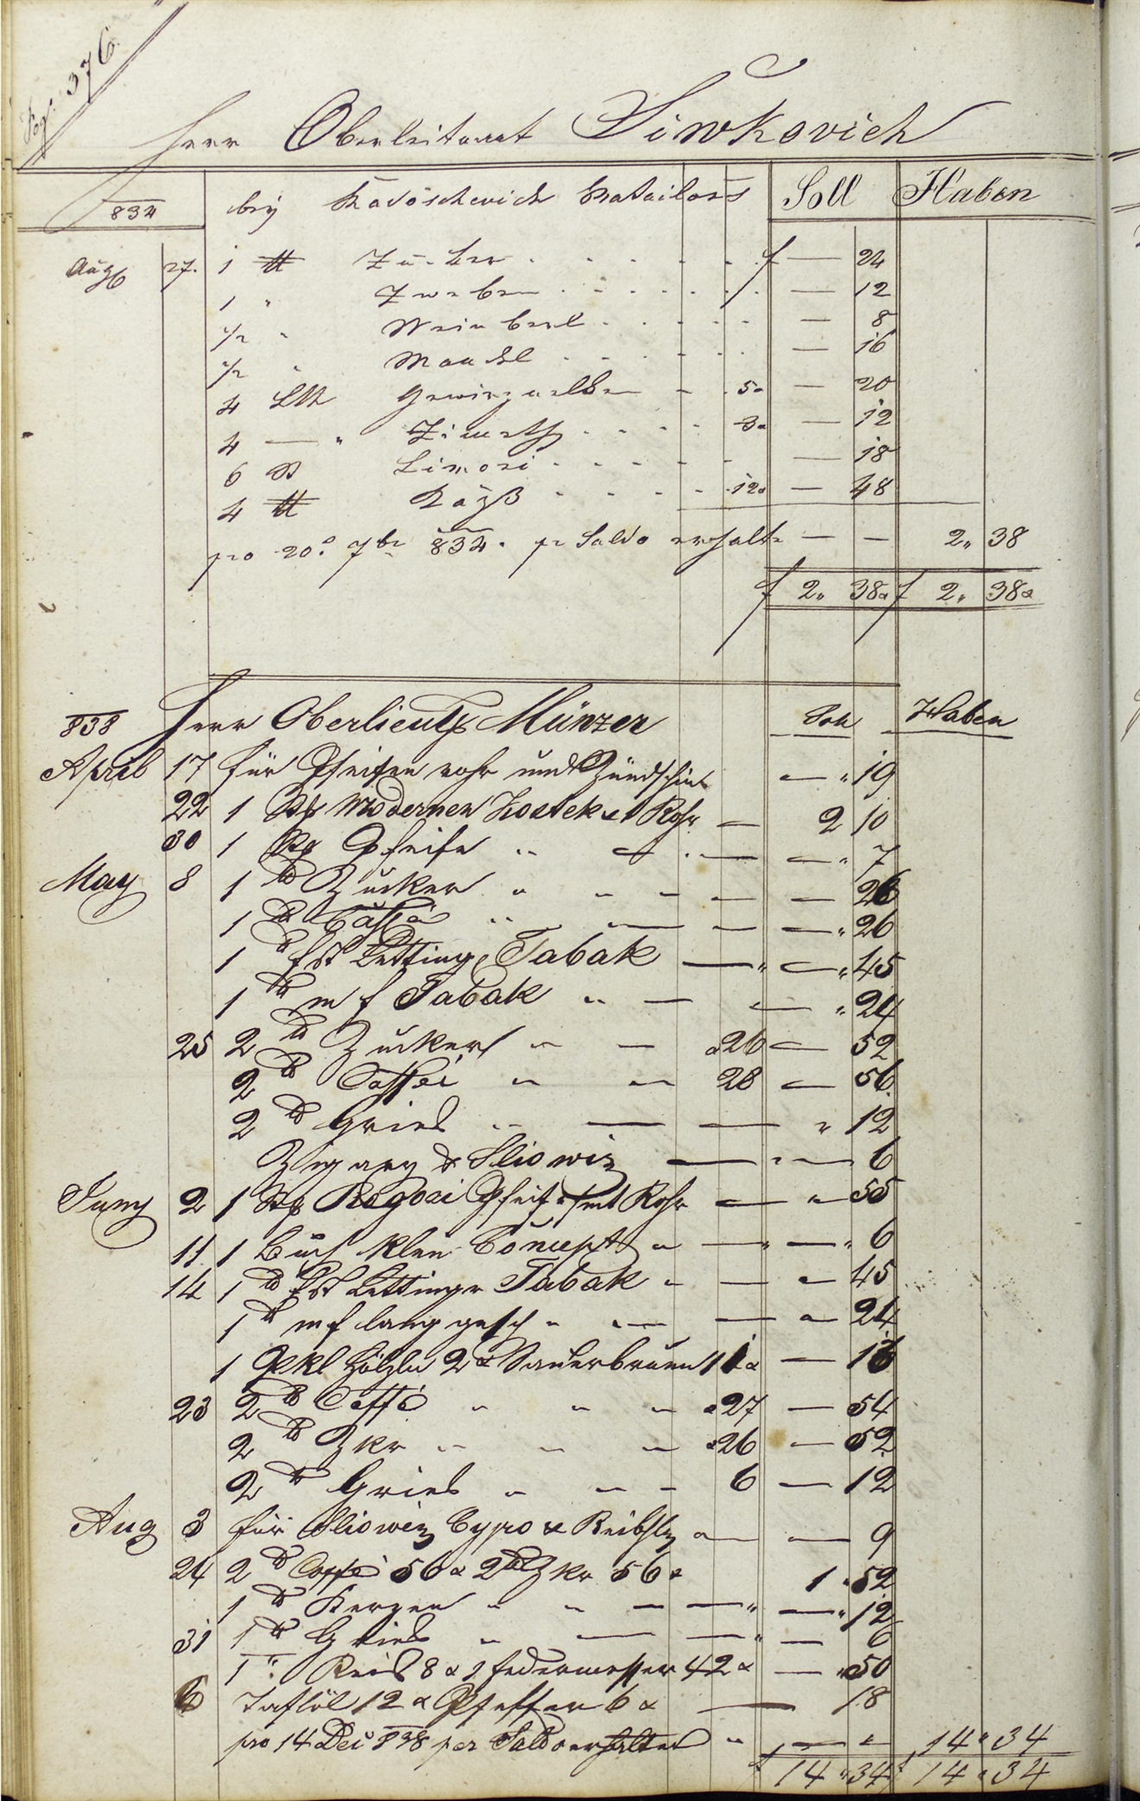 Fol. 376.
Herr Oberleitanat Simkovich
834 bey Radoschevich Batailons Soll Haben
Aug 27. 1 ℔ Zucker f — 24
1 " Zweben — 12
1/2 " Weinberl — 8
1/2 " Mandl — 16
4 Lth Gewirznelken 5 — 20
4 — " Zimeth 3 — 12
6 St Limoni — 18
4 ℔ Käß 12 — 48
pro 20. 7br 834. pr Saldo erhalte — — 2 " 38
f 2 " 38 f 2 " 38
838 Herr Oberlieut Münzer Soll Haben
April 17 für Pfeifen rohr und Zündschint — " 19
22 1 Stk Modernen Rohr — 2 10
30 1 Stk Pfeife " — " 7
May 8 1 ℔ Zucker " — 26
1 ℔ Caffé " — " 26
1 ℔ Lettinge Tabak — " 45
1 ℔ m f Tabak " — " 24
25 2 ℔ Zucker " — 26 — 52
2 ℔ Caffei " " 28 — 56
2 ℔ Gries " — " 12
Zigary & Sliowiz — " — 6
Juny 2 1 Stk Pfeife Rohr — " 55
11 1 Buch klein Concept " — " — " 6
14 1 ℔ Lettinge Tabak " — " 45
1 ℔ m f lang gesch " — 24
1 Pekl hölzln 2 x Sauerbrunn 11 x — 13
23 2 ℔ Caffé " " " 27 — 54
2 ℔ Zkr " " " 26 — 52
2 ℔ Gries " " — 6 — 12
Aug 3 für Sliowiz Cypro & — 9
24 2 ℔ Caffé 56 x 2 ℔ Zkr 56 x 1 " 52
1 ℔ Kerzen " " — " — " 12
31 1 ℔ Gries " — " — 6
1 " Reis 8 x 1 federmesser 42 x — " 50
6 Taflöl 12 x Pfeffer 6 x — 18
pro 14 Dec 838 per Saldo erhalten " — " 14 " 34
f 14 " 34 f 14 " 34